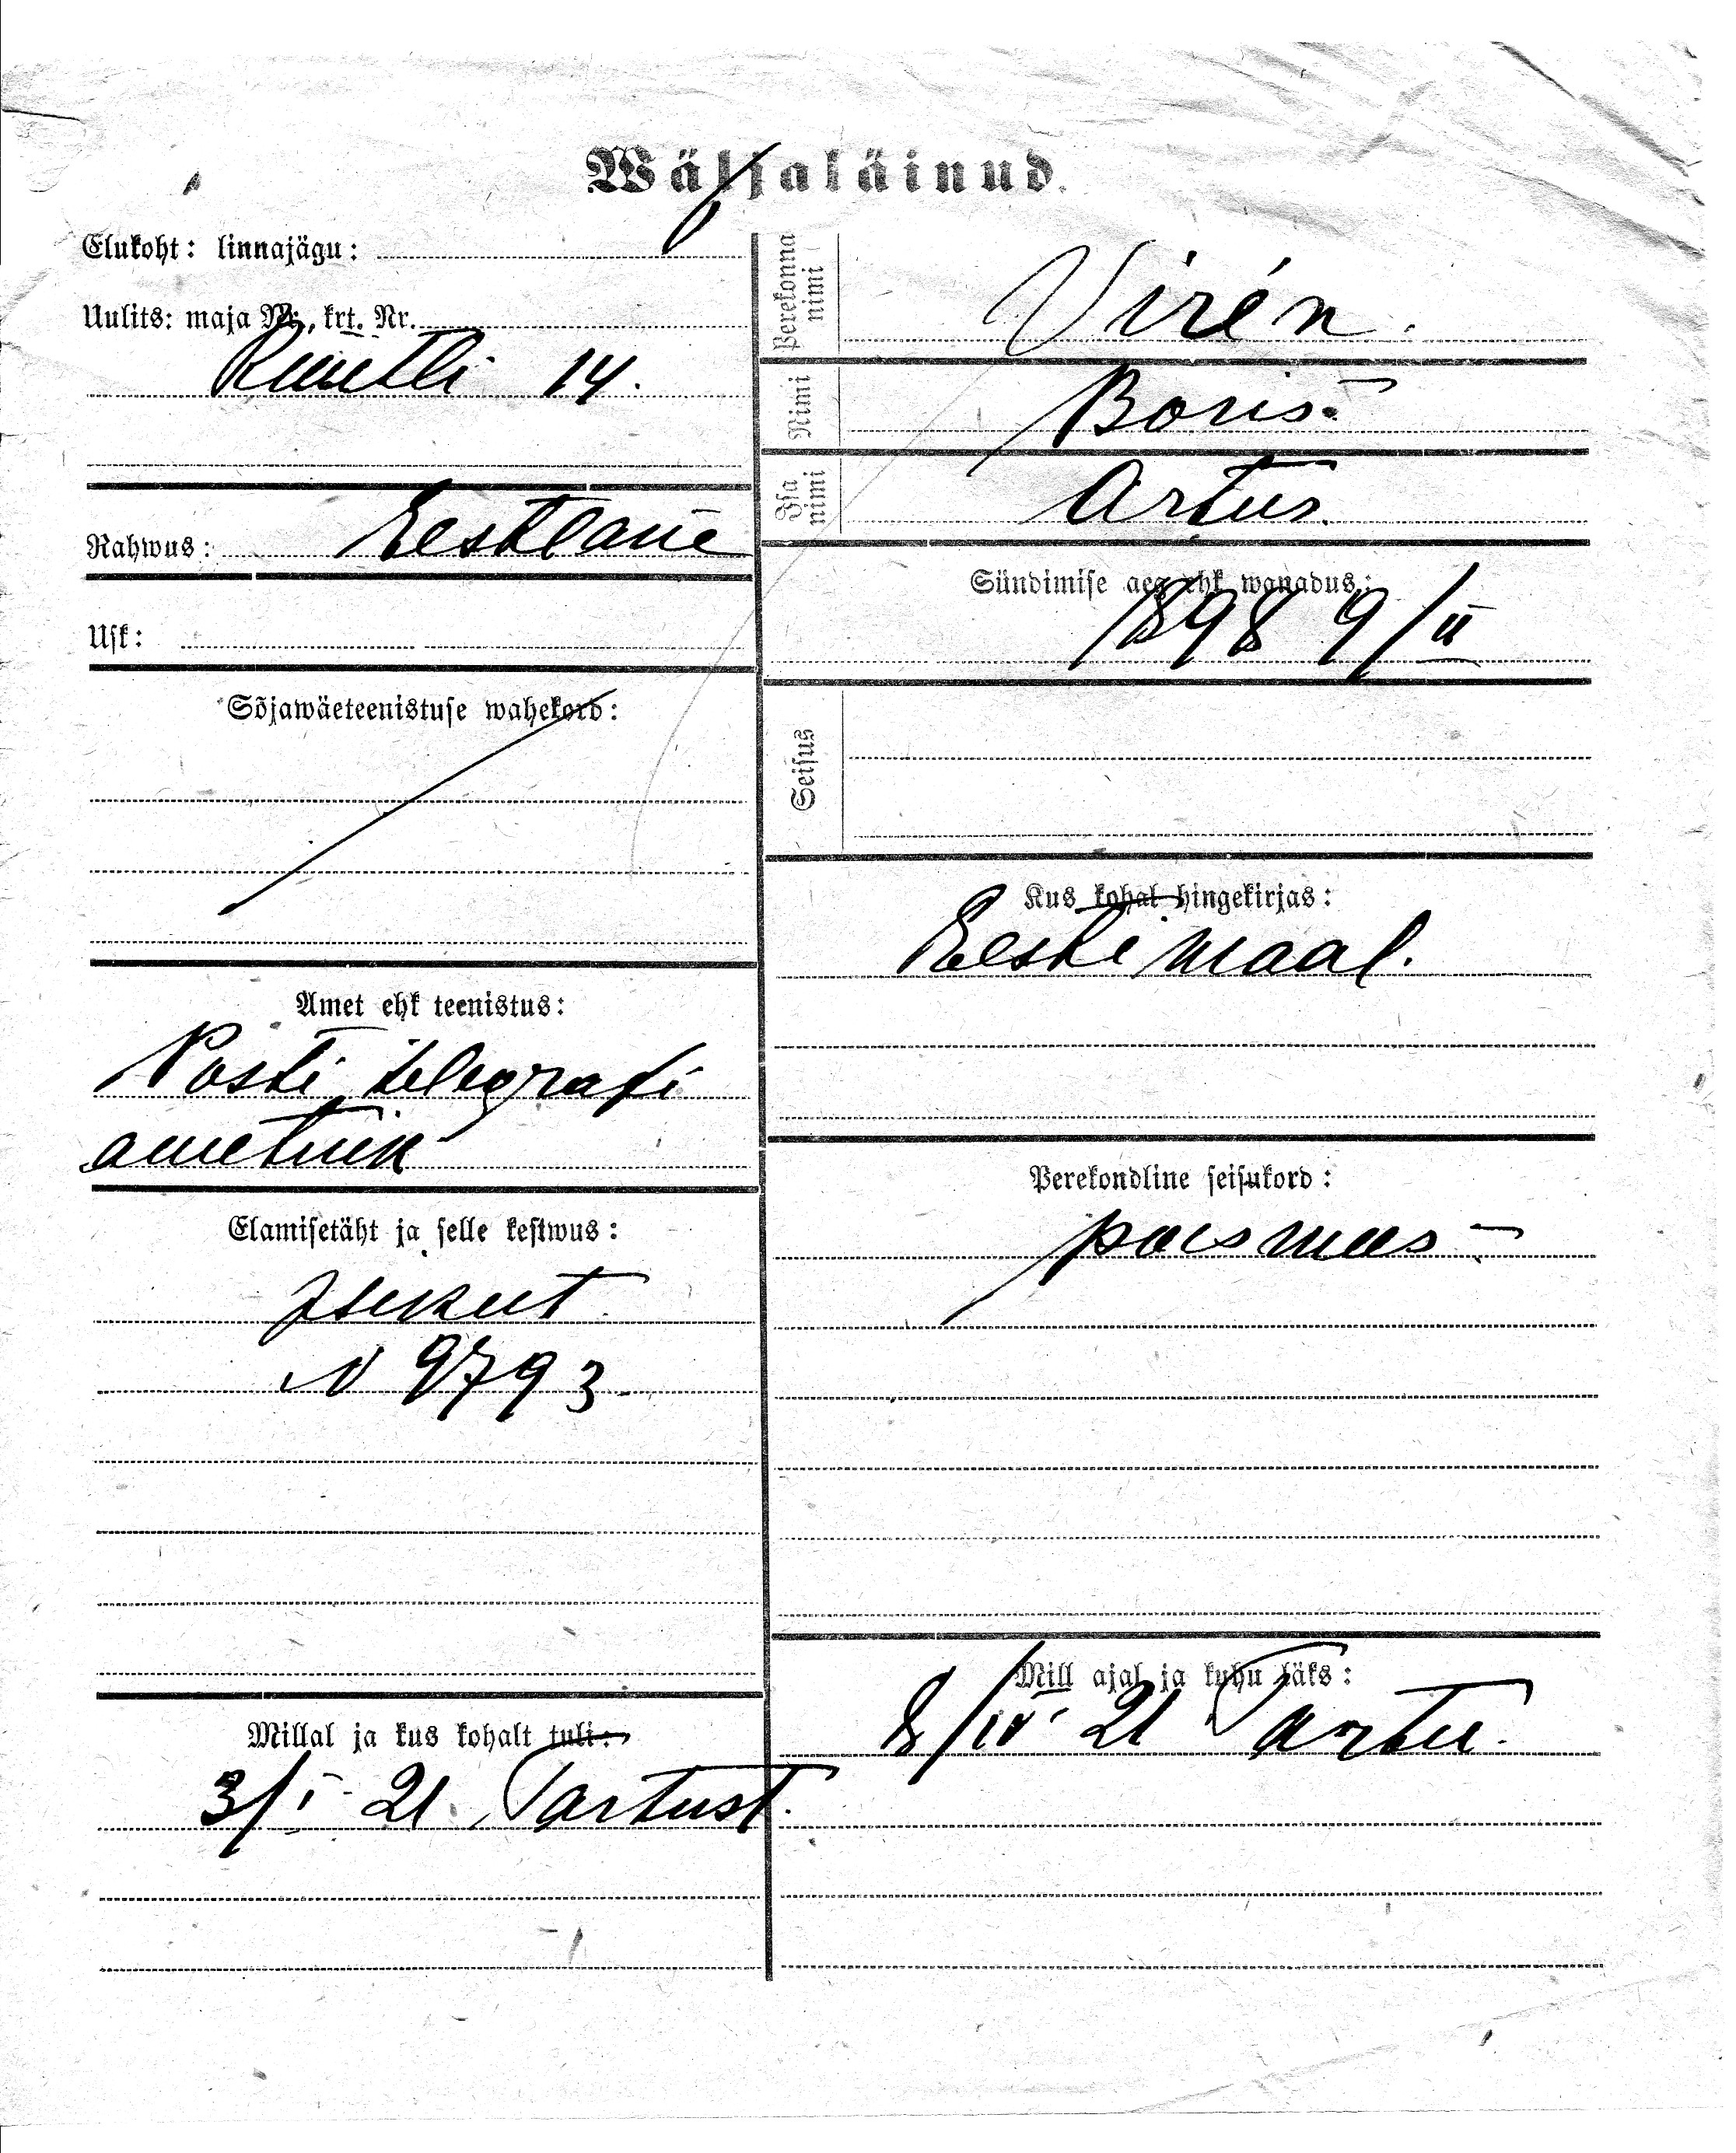 Wäljaläinud.
Elukoht: linnajägu:
Uulits: maja Nr., krt. Nr.
Ruutli 14.
Rahwus: Eestlane
Usk:
Sõjawäeteenistuse wahekord:
Amet ehk teenistus:
Posti telegrafi
ametnik
Elamisetäht ja selle kestwus:
Isikut.
N 9793
Millal ja kus kohalt tuli:
3/I 21. Tartust.
Perekonna
nimi
Virén.
Nimi
Boris
Isa
nimi
Artur.
Sündimise aeg ehk wanadus:
1898 9/II
Seisus
Kus kohal hingekirjas:
Eestimaal.
Perekondline seisukord:
poismees
Mill ajal ja kuhu läks:
8/IV 21 Tartu.